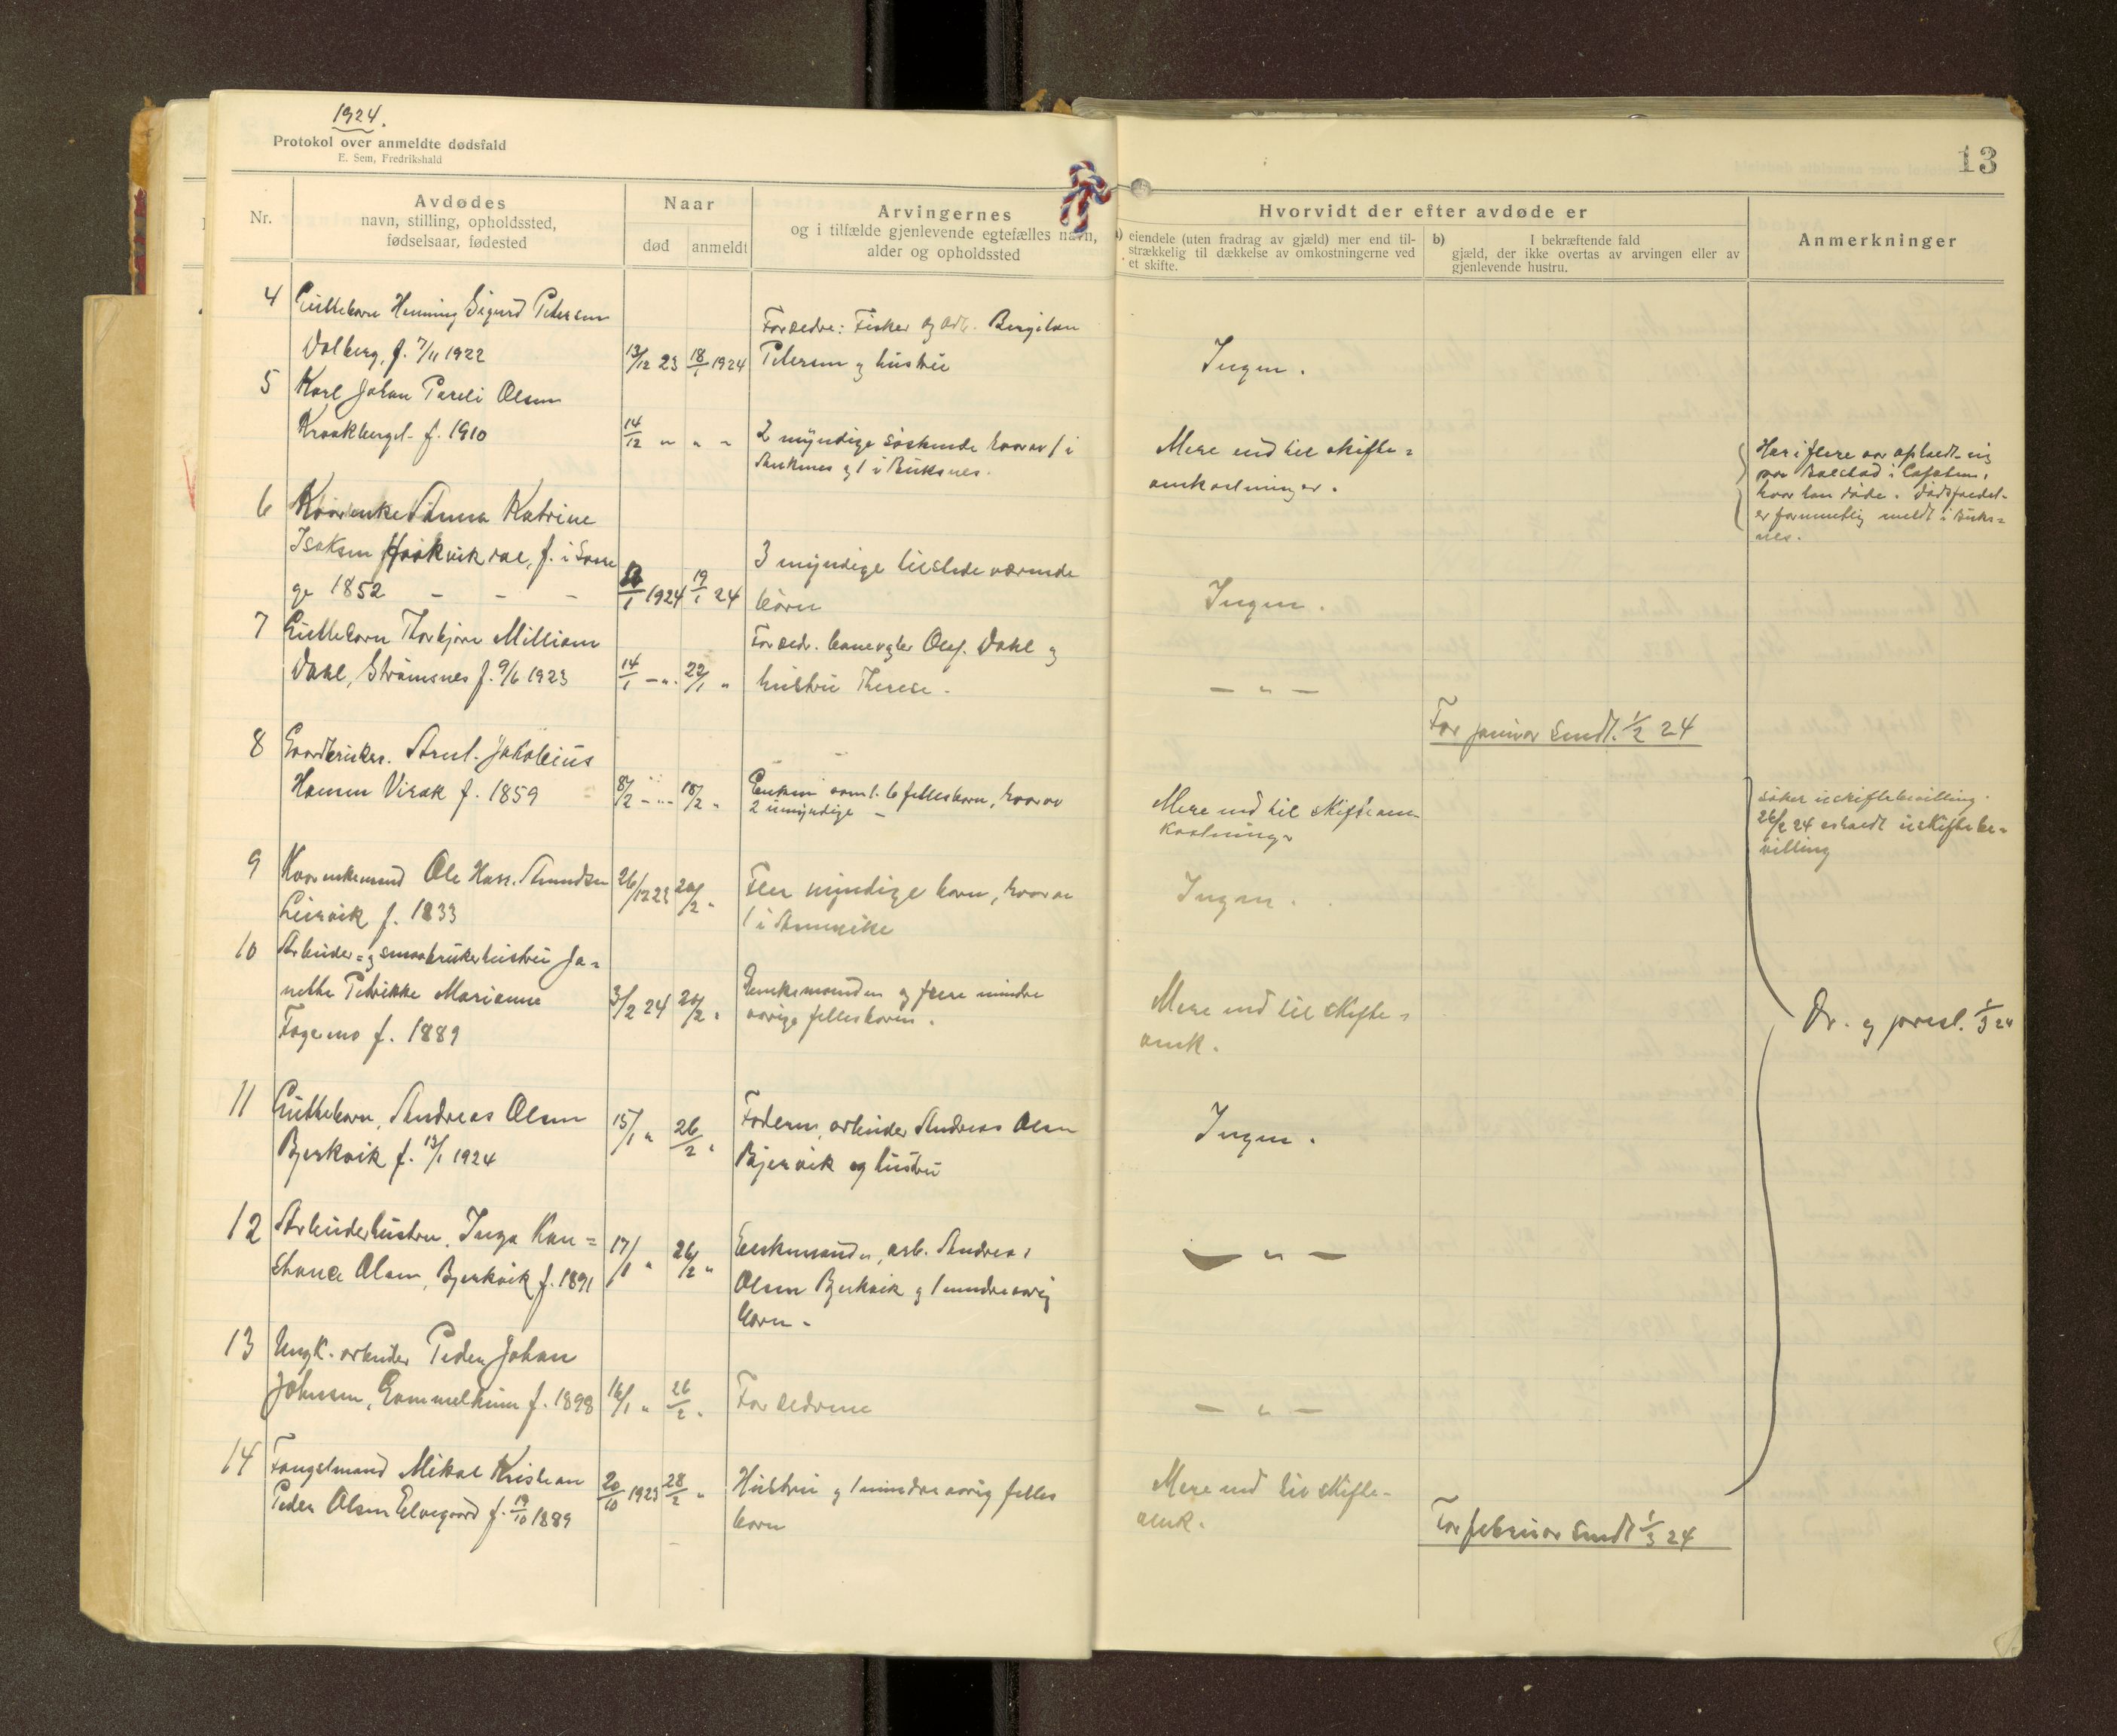 1924.
Protokol over anmeldte dødsfald
E. Sem, Fredrikshald
13
Nr.
Avdødes
navn, stilling, opholdssted,
fødselsaar, fødested
Naar
død
anmeldt
Arvingernes
og i tilfælde gjenlevende egtefælles navn,
alder og opholdssted
Hvorvidt der efter avdøde er
a) eiendele (uten fradrag av gjæld) mer end til-
strækkelig til dækkelse av omkostningerne ved
et skifte.
b) I bekræftende fald
gjæld, der ikke overtas av arvingen eller av
gjenlevende hustru.
Anmerkninger
4 Guttebarn Henning Sigurd Petersen
Dalberg, f. 7/11 1922
13/12 23 18/1 1924
Forældre: Fisker og arb. Bergiton
Petersen og hustru
Ingen.
5 Karl Johan Pareli Olsen
Kraakberget f. 1910
14/12 " " "
2 myndige søskende hvorav 1 i
Ankenes og 1 i Buksnes.
Mere end til skifte=
omkostninger.
Har i flere aar opholdt sig
paa Balstad i Lofoten,
hvor han døde. Dødsfaldet
er formentlig meldt i Buks=
nes.
6 Kaarenke Anna Katrine
Isaksen Haakvik f. i Saue
ge 1852 - - -
/1 1924 19/1 24
3 myndige tilstedeværende
børn
Ingen.
7 Guttebarn Thorbjørn William
Dahl, Strømsnes f. 9/6 1923
14/1 - " - 22/1 "
Foreldr. banevgter Olaf Dahl og
hustru Therese.
- " -
For januar sendt 1/2 24
8 Gaardbruker Arnt Jakobeus
Hansen Virak f. 1859
8/2 - " - 18/2 "
Enken samt 6 fellesbarn, hvorav
2 umyndige -
Mere end til skifteom-
kostninger
Søker uskiftebevilling.
26/2 24 erholdt uskiftebe=
villing
9 Kaarenkemand Ole Hans. Amundsen
Leirvik f. 1833
26/12 23 20/2 "
Fler myndige barn, hvorav
1 i Amerika
Ingen.
10 Arbeider= og smaabrukerhustru Ja=
nette Petrikke Marianne
Fagermo f. 1889
3/2 24 20/2 "
Enkemanden og flere mindre
aarige fellesbarn.
Mere end til skifte=
omk.
Dr. og presl. 1/3 24
11 Guttebarn, Andreas Olsen
Bjerkvik f. 13/1 1924
15/1 " 26/2 "
Faderen, arbeider Andreas Olsen
Bjervik og hustru
Ingen.
12 Arbeiderhustru, Inga Kon=
stance Olsen, Bjerkvik f. 1891
17/1 " 26/2 "
Enkemanden, arb. Andreas
Olsen Bjerkvik og 1 mindreaarig
barn.
- " -
13 Ungk. arbeider Peder Johan
Johnsen, Gammelheim f. 1898
16/1 " 26/2 "
Forældrene
- " -
14 Fangstmand Mikal Kristian
Peder Olsen Elvegaard f. 19/10 1889
20/10 1923 28/2 "
Hustru og 1 mindreaarig felles
barn
Mere end til skifte-
omk.
For februar sendt 1/3 24